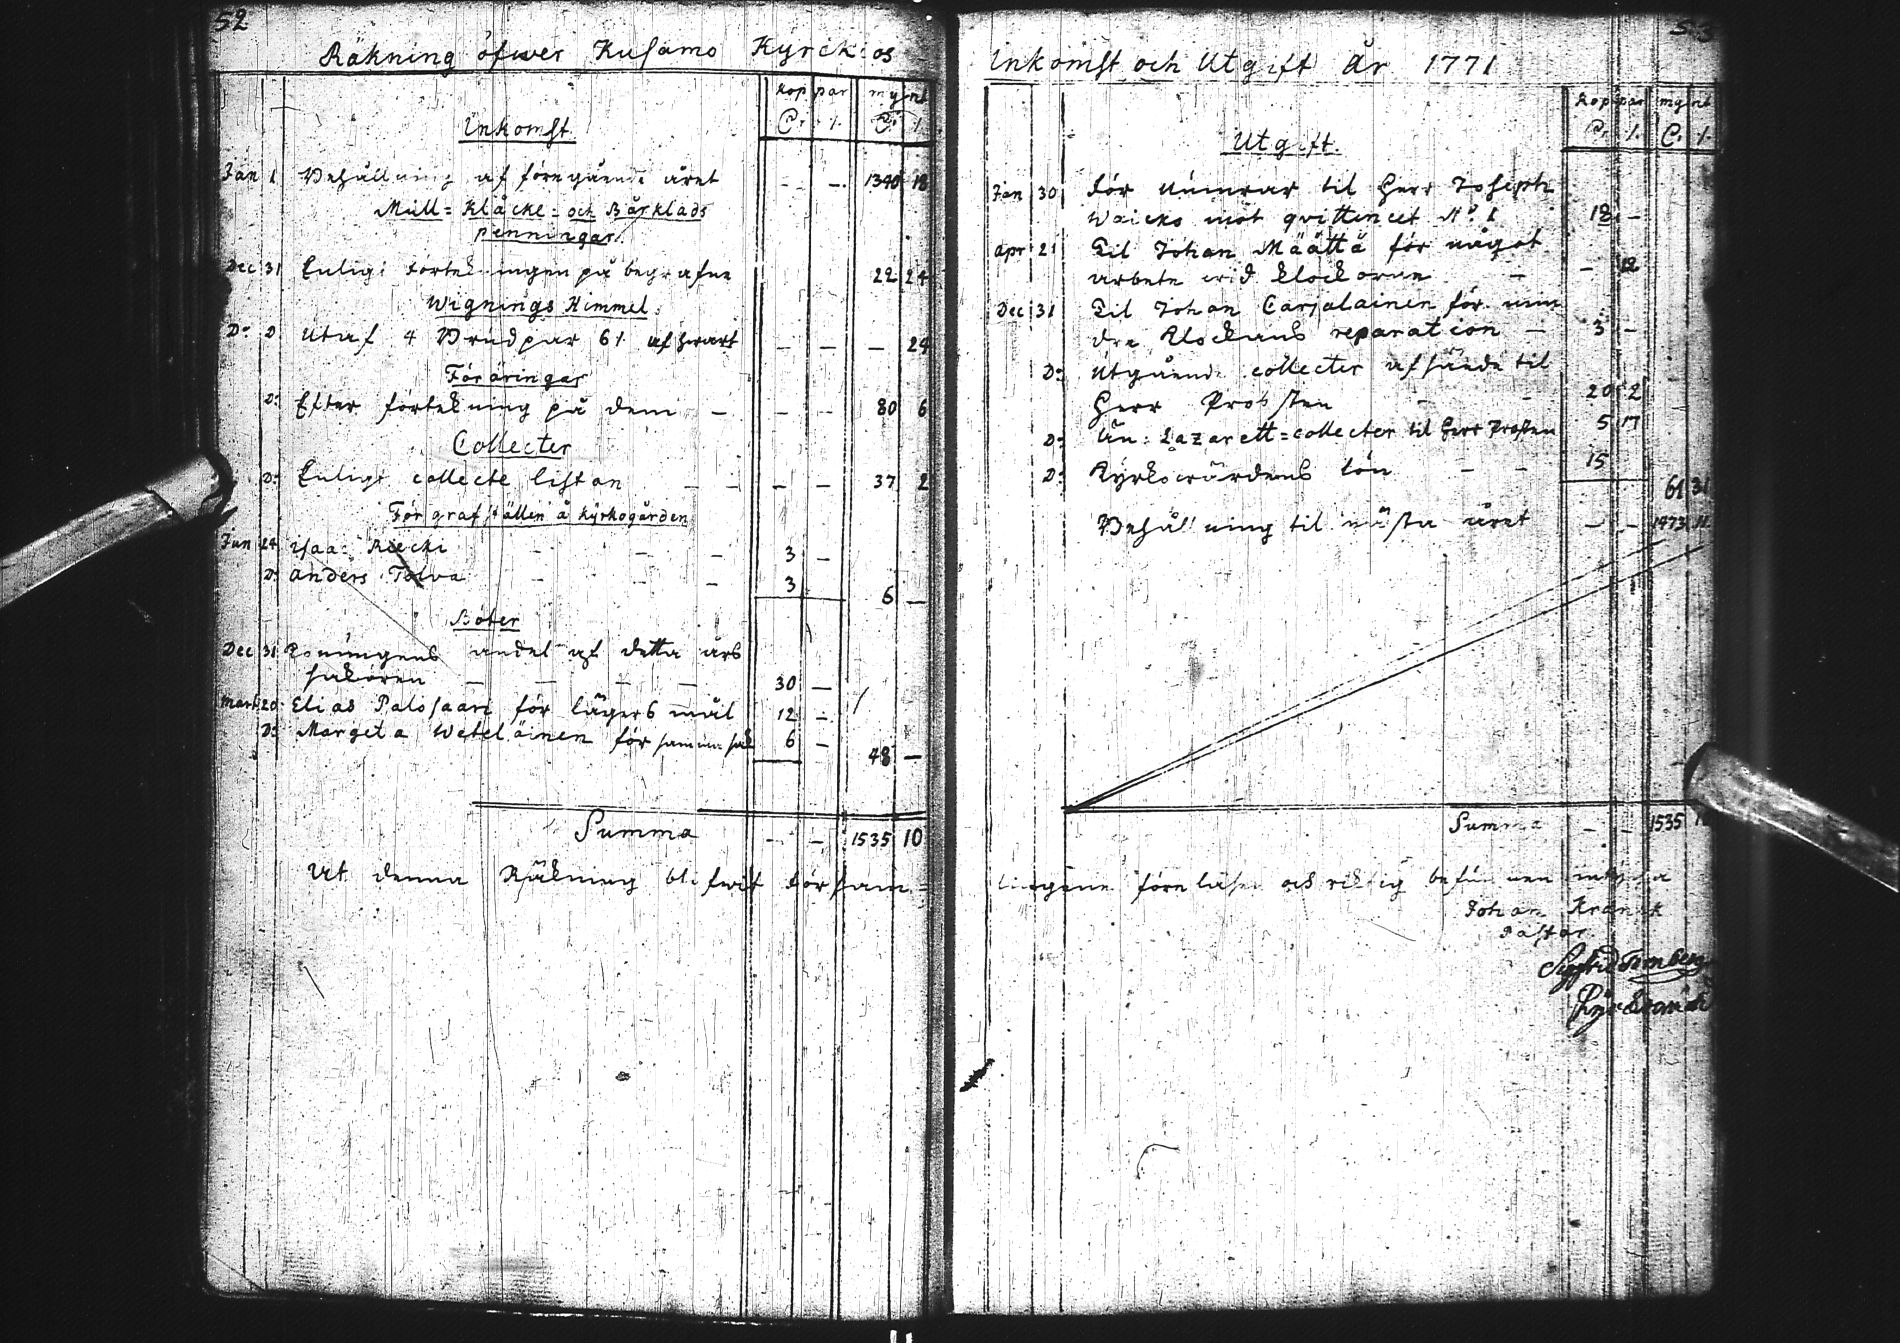 52
Räkning öfwer Kusamo Kyrck:os
kop par mynt
Cr. 1. Cr. 1.
Inkomst
Jan 1 Behållning af föregående året - - 1340 18
Mull= Klåcke= och Bårklads
penningar.
Dec 31 Enligt förtekningen på begrafne 22 24
Wignings Himmel.
Do D Utaf 4 Brudpar 6 1. af hwart - - - 24
Föräringar
D: Efter förtekning på dem - - - 80 6
Collecter
D: Enligt collecte listan - - - - 37 2
För grafställen å kyrkogården
Jun 24 Isaac - - - 3 -
D: Anders Tolva - - - 3 6 -
Böter
Dec 31 Konungens andel af detta års
sakören - - - - 30 -
Mart 20 Elias Palosaari för lägers mål 12 -
D: Margeta Weteläinen för samma sak 6 - 48 -
Summa - - 1535 10
At denna Räkning blifwit församˍ=
53
Inkomst och Utgift År 1771
kop par mynt
Cr. 1. Cr. 1.
Utgift.
Jan 30 För til Herr Joseph
Waicko mot qvittencet No. 1 18 -
Apr 21 Til Johan Määttä för något
arbete wid klockorne - - 12
Dec 31 Til Johan Carjalainen för min
dre Klockans reparation - 3 -
D: Utgående collecter afsände til
Herr Probsten - - 20 2
D: An: Lazarett=collecter til Herr Prosten 5 17
D: Kyrkowärdens lön - - 15
61 31
Behållning til nästa året - - 1473 11
Summa - - 1535 10
lingene föreläsen och riktig befunnen intyga
Johan Kranck
Pastor.
Sigfrid Tornberg